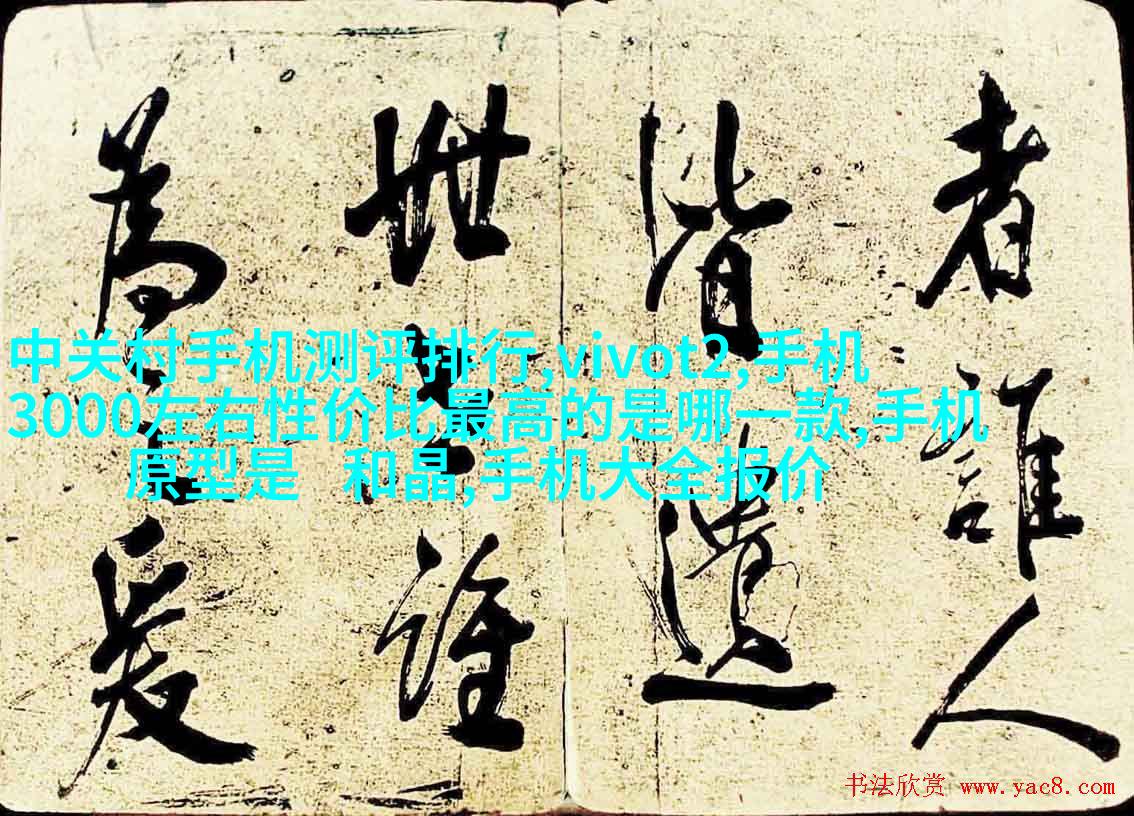 者誰人
皆遺
世誰
為
中关村手机测评排行,vivot2,手机
3000左右性价比最高的是哪一款,手机
原型是 和晶,手机大全报价
书法欣赏 www.yac8.com